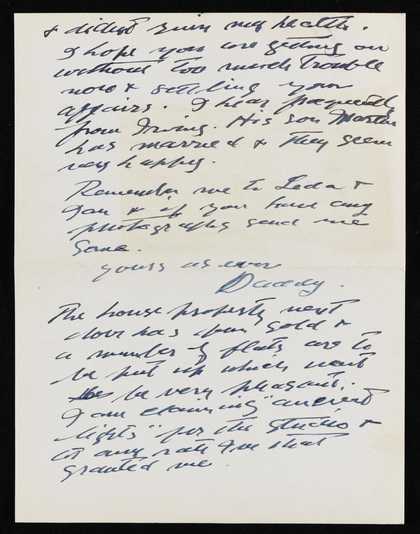 & didn't ruin my health.
I hope you are getting on
without too much trouble
now & settling your
affairs. I hear frequently
from Irving. His son Martin
has married & they seem
very happy.
Remember me to Leda &
Jan & if you have any
photographs send me
some.
yours as ever
Daddy.
The house property next
door has been sold &
a number of flats are to
be put up which wont
be very pleasant.
I am claiming "ancient
lights" for the studio &
at any rate I've that
granted me.